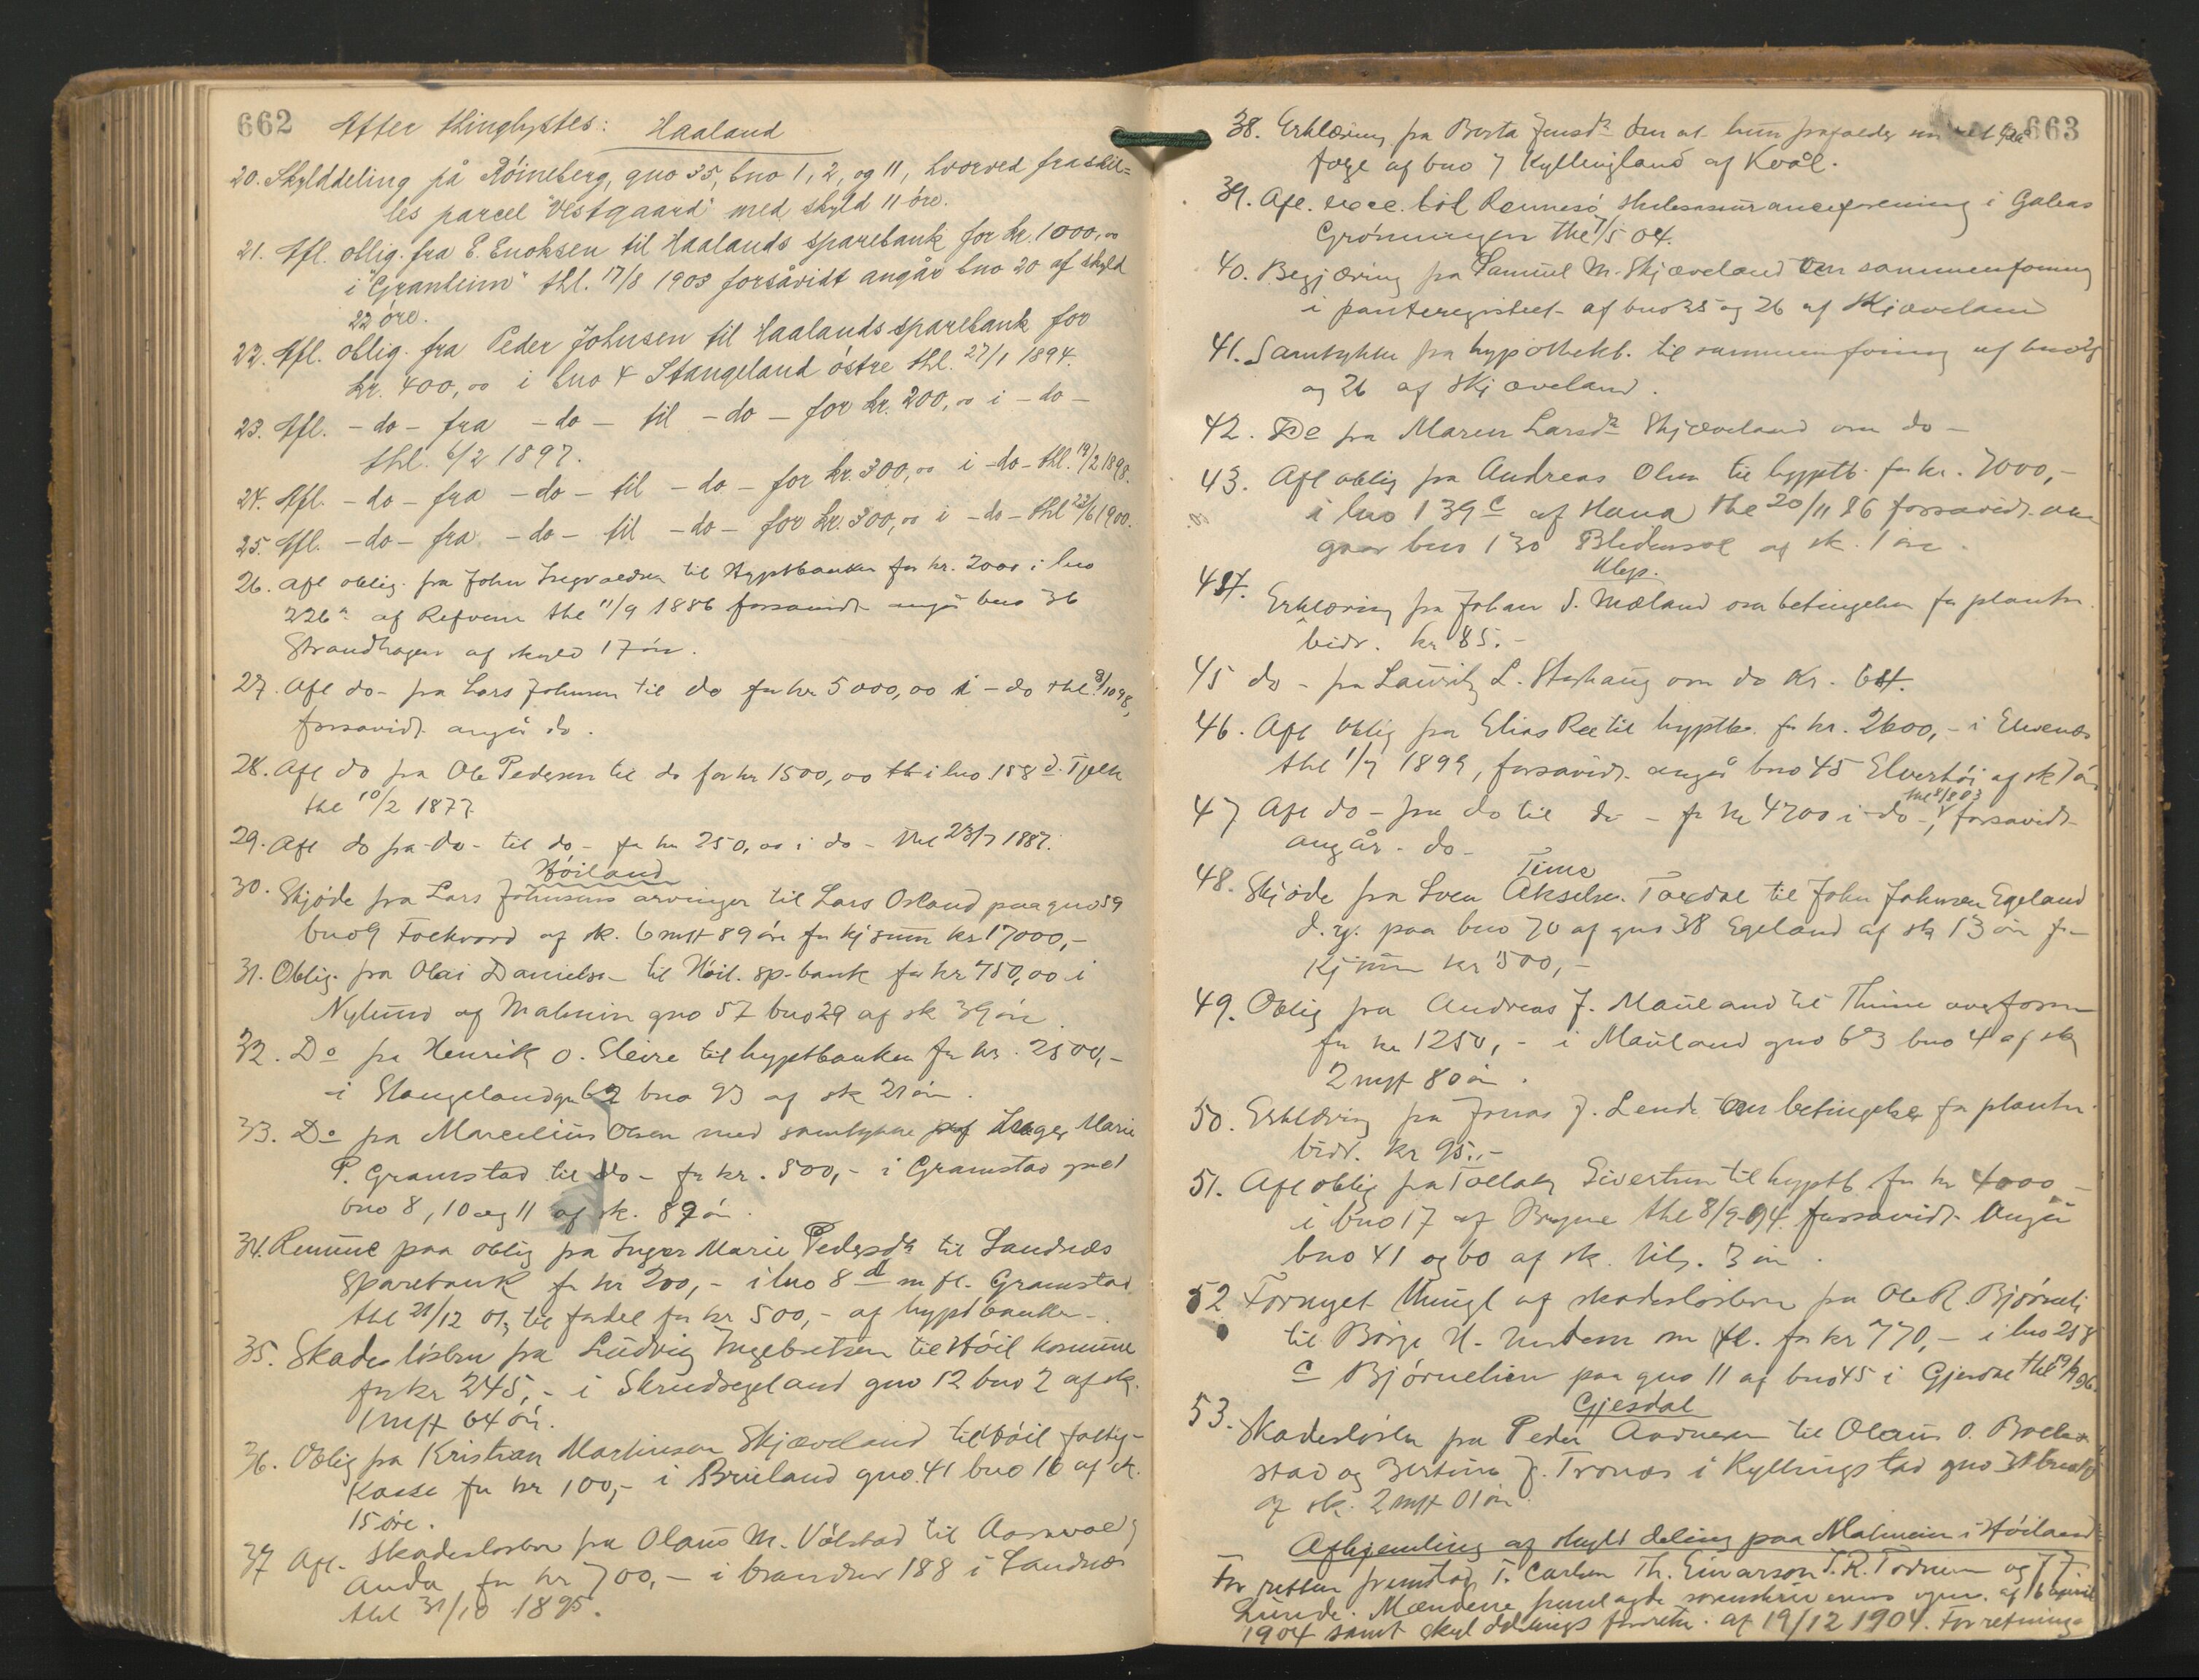 662 After thinglystes: Haaland
20. Skylddeling på Röineberg, gno 35, bno 1, 2, og 11, hvorved fraskil=
les parcel "Vestgaard" med skyld 11 öre.
21. Afl. oblig. fra E. Enoksen til Haalands sparebank for kr. 1000,00
i "Granheim" thl. 17/8 1903 forsåvidt angår bno 20 af skyld
22 öre.
22. Afl. oblig. fra Peder Johnsen til Haalands sparebank for
kr. 400,00 i bno 4 Stangeland östre thl. 27/1 1894.
23. Afl. -do- fra -do- til -do- for kr. 200,00 i -do-
thl. 6/2 1897.
24. Afl. -do- fra -do- til -do- for kr. 300,00 i -do- thl. 19/2 1898.
25. Afl. -do- fra -do- til -do- for kr. 300,00 i -do- thl 22/6 1900.
26. Afl oblig. fra John Ingvaldsen til Hyptbanken for kr. 2000 i bno
226a af Refven thl 11/9 1886 forsavidt angår bno 36
Strandhagen af skyld 17 öre.
27. Afl do- fra Lars Johnsen til do for kr 5000,00 i -do thl. 8/10 98,
forsavidt angår do.
28. Afl do fra Ole Pedersen til do for kr 1500,00 i bno 158 d. Tjelte
thl 10/2 1877.
29. Afl do fra -do- til do- for kr 250,00 i do - thl 23/7 1887.
Höiland
30. Skjöde fra Lars Johnsens arvinger til Lars Osland paa gno 59
bno 9 Folkvord af sk. 6 mk 89 öre for kjsum kr 17000,-
31. Oblig. fra Olai Danielsen til Höil. sp.bank for kr 750,00 i
Nylund af Malmin gno 57 bno 29 af sk 39 öre.
32. Do fra Henrik O. Sleire til hyptbanken for kr. 2500,-
i Stangeland gn 62 bno 93 af sk 21 öre.
33. Do fra Marcelius Olsen med samtykke af Inger Marie
P. Gramstad til do- for kr. 500,- i Gramstad gno 1
bno 8, 10 og 11 af sk. 89 öre.
34. Remme paa oblig fra Inger Marie Pedersdtr til Sandnæs
Sparebank for kr 200,- i bno 8 d m fl. Gramstad
thl 21/12 01, til fordel for kr 500,- af hyptbanken.
35. Skadeslösbrev fra Ludvig Ingebretsen til Höil kommune
for kr 245,- i Skrudsegeland gno 12 bno 2 af sk.
1 mk 64 öre.
36. Oblig fra Kristian Martinsen Skjæveland til Höil fattig-
kasse for kr 100,- i Brueland gno. 41 bno 16 af sk.
15 öre.
37 Afl. Skadeslösbrev fra Olaus M. Völstad til Aasmund
Anda for kr 700,- i brandnr 188 i Sandnes
thl 31/10 1895.
663
38. Erklæring fra Berta Jensdtr om at hun frafalder
foge af bno 7 Kyllingland af Kvål.
39. Afl. exec. til Rennesö skibsassuranceforening i Galeas
Gröningen thl 7/5 04.
40. Begjæring fra Samuel M. Skjæveland om sammenföining
i panteregistret af bno 25 og 26 af Skjæveland
41. Samtykke fra hypothekb. til sammenföining af bno 25
og 26 af Skjæveland.
42. Do fra Maren Larsdtr Skjæveland om do-
43. Afl oblig fra Andreas Olsen til hyptb. for kr. 7000,-
i bno 139 c af Hana thl 20/11 86 forsavidt an-
gaar bno 130 Blidensol af sk. 1 öre.
Klep.
44. Erklæring fra Johan S. Mæland om betingelser for plantn.
bidr. kr 85.-
45 do - fra Lauritz L. Stokaug om do kr. 64.
46. Afl oblig fra Elias Ree til hyptbk. for kr. 2600,- i Elvenes
thl 1/7 1899, forsavidt angår bno 45 Elverhöi af sk 7 öre
47 Afl do- fra do til do - for kr 4700 i -do-, thl 8/8 03 forsavidt
angår - do-
Time
48. Skjöde fra Sven Akselsen Taksdal til John Johnsen Egeland
d.y. paa bno 70 af gno 38 Egeland af sk 13 öre for
kjsum kr 500,-
49. Oblig fra Andreas J. Mauland til Thime overform
for kr 1250,- i Mauland gno 63 bno 4 af sk
2 mk 80 öre.
50. Erklæring fra Jonas J. Lende om betingelser for plantn.
bidr. kr 95.-
51. Afl oblig fra Tollak Sivertsen til hyptb. for kr 4000,-
i bno 17 af Bryne thl 8/9-94. forsavidt angår
bno 41 og 60 af sk. tils. 3 öre.
52 Fornyet thingl af skadeslösbrev fra Ole R. Björneli
til Börge H. Undem m fl. for kr 770,- i bno 258
c Björnelien paa gno 11 af bno 45 i Gjesdal
Gjesdal
53. Skadeslösbr fra Peder Aadnesen til Olaus O. Bolle-
stad og Bertine J. Tronæs i Kyllingstad gno 31
af sk. 2 mk 01 öre.
Afhjemling af skylddeling paa Malmein i Höiland
For retten fremstod T. Carlsen Th. Einarson T. R. Todnem og T. T.
Lunde. Mændene fremlagde sorenskriverens opn. af 16 april
1904 samt skylddelings forretn. af 19/12 1904. Forretning-